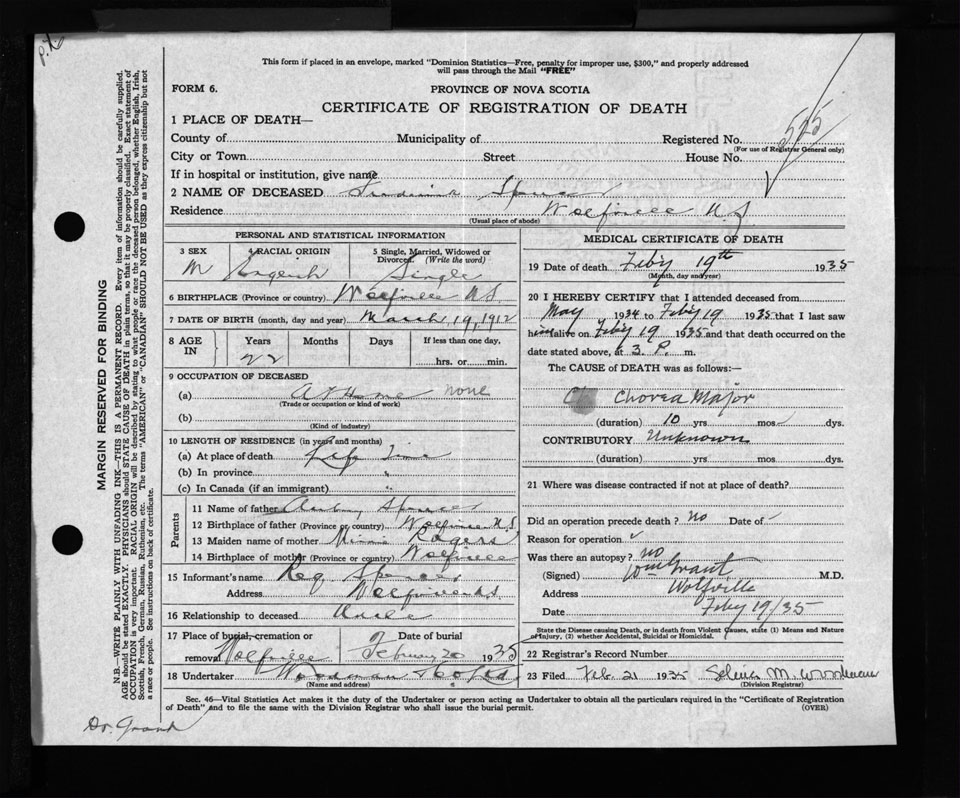 This form if placed in an envelope, marked "Dominion Statistics—Free, penalty for improper use, $300," and properly addressed
will pass through the Mail "FREE"
FORM 6.
PROVINCE OF NOVA SCOTIA
CERTIFICATE OF REGISTRATION OF DEATH
1 PLACE OF DEATH—
County of Municipality of Registered No. 525
(For use of Registrar General only)
City or Town Street House No.
If in hospital or institution, give name
2 NAME OF DECEASED Frederick Spencer
Residence Wolfville N.S.
(Usual place of abode)
PERSONAL AND STATISTICAL INFORMATION
3 SEX 4 RACIAL ORIGIN 5 Single, Married, Widowed or
Divorced. (Write the word)
M English Single
6 BIRTHPLACE (Province or country) Wolfville N.S.
7 DATE OF BIRTH (month, day and year) March, 19, 1912
8 AGE IN Years Months Days If less than one day,
22 hrs. or min.
9 OCCUPATION OF DECEASED
(a) At Home none
(Trade or occupation or kind of work)
(b)
(Kind of industry)
10 LENGTH OF RESIDENCE (in years and months)
(a) At place of death Life Time
(b) In province "
(c) In Canada (if an immigrant) "
Parents
11 Name of father Spencer
12 Birthplace of father (Province or country) Wolfville N.S.
13 Maiden name of mother Minnie Rogers
14 Birthplace of mother (Province or country) Wolfville
15 Informant's name Reg Spencer
Address Wolfville N.S.
16 Relationship to deceased Uncle
17 Place of burial, cremation or removal Wolfville Date of burial February 20 1935
18 Undertaker Woodman
(Name and address)
MEDICAL CERTIFICATE OF DEATH
19 Date of death Feby 19th 1935
(Month, day and year)
20 I HEREBY CERTIFY that I attended deceased from
May 1934 to Feby 19 1935 that I last saw
him alive on Feby 19 1935 and that death occurred on the
date stated above, at 3 P. m.
The CAUSE of DEATH was as follows:—
Ch Chorea Major
(duration) 10 yrs. mos. dys.
CONTRIBUTORY Unknown
(duration) yrs. mos. dys.
21 Where was disease contracted if not at place of death?
Did an operation precede death? No Date of
Reason for operation
Was there an autopsy? no
(Signed) Wm Grant M.D.
Address Wolfville
Date Feby 19/35
State the Disease causing Death, or in death from Violent Causes, state (1) Means and Nature
of Injury, (2) whether Accidental, Suicidal or Homicidal.
22 Registrar's Record Number
23 Filed Feb 21 1935 M.
(Division Registrar)
Sec. 46—Vital Statistics Act makes it the duty of the Undertaker or person acting as Undertaker to obtain all the particulars required in the "Certificate of Registration
of Death" and to file the same with the Division Registrar who shall issue the burial permit. (OVER)
Dr. Grant
MARGIN RESERVED FOR BINDING
N.B.—WRITE PLAINLY WITH UNFADING INK—THIS IS A PERMANENT RECORD. Every item of information should be carefully supplied.
AGE should be stated EXACTLY. PHYSICIANS should STATE CAUSE OF DEATH in plain terms, so that it may be properly classified. Exact statement of
OCCUPATION is very important. RACIAL ORIGIN will be described by stating to what people or race the deceased person belonged, whether English, Irish,
Scottish, French, German, Russian, Ruthenian, etc. The terms "AMERICAN" or "CANADIAN" SHOULD NOT BE USED as they express citizenship but not
a race or people. See instructions on back of certificate.